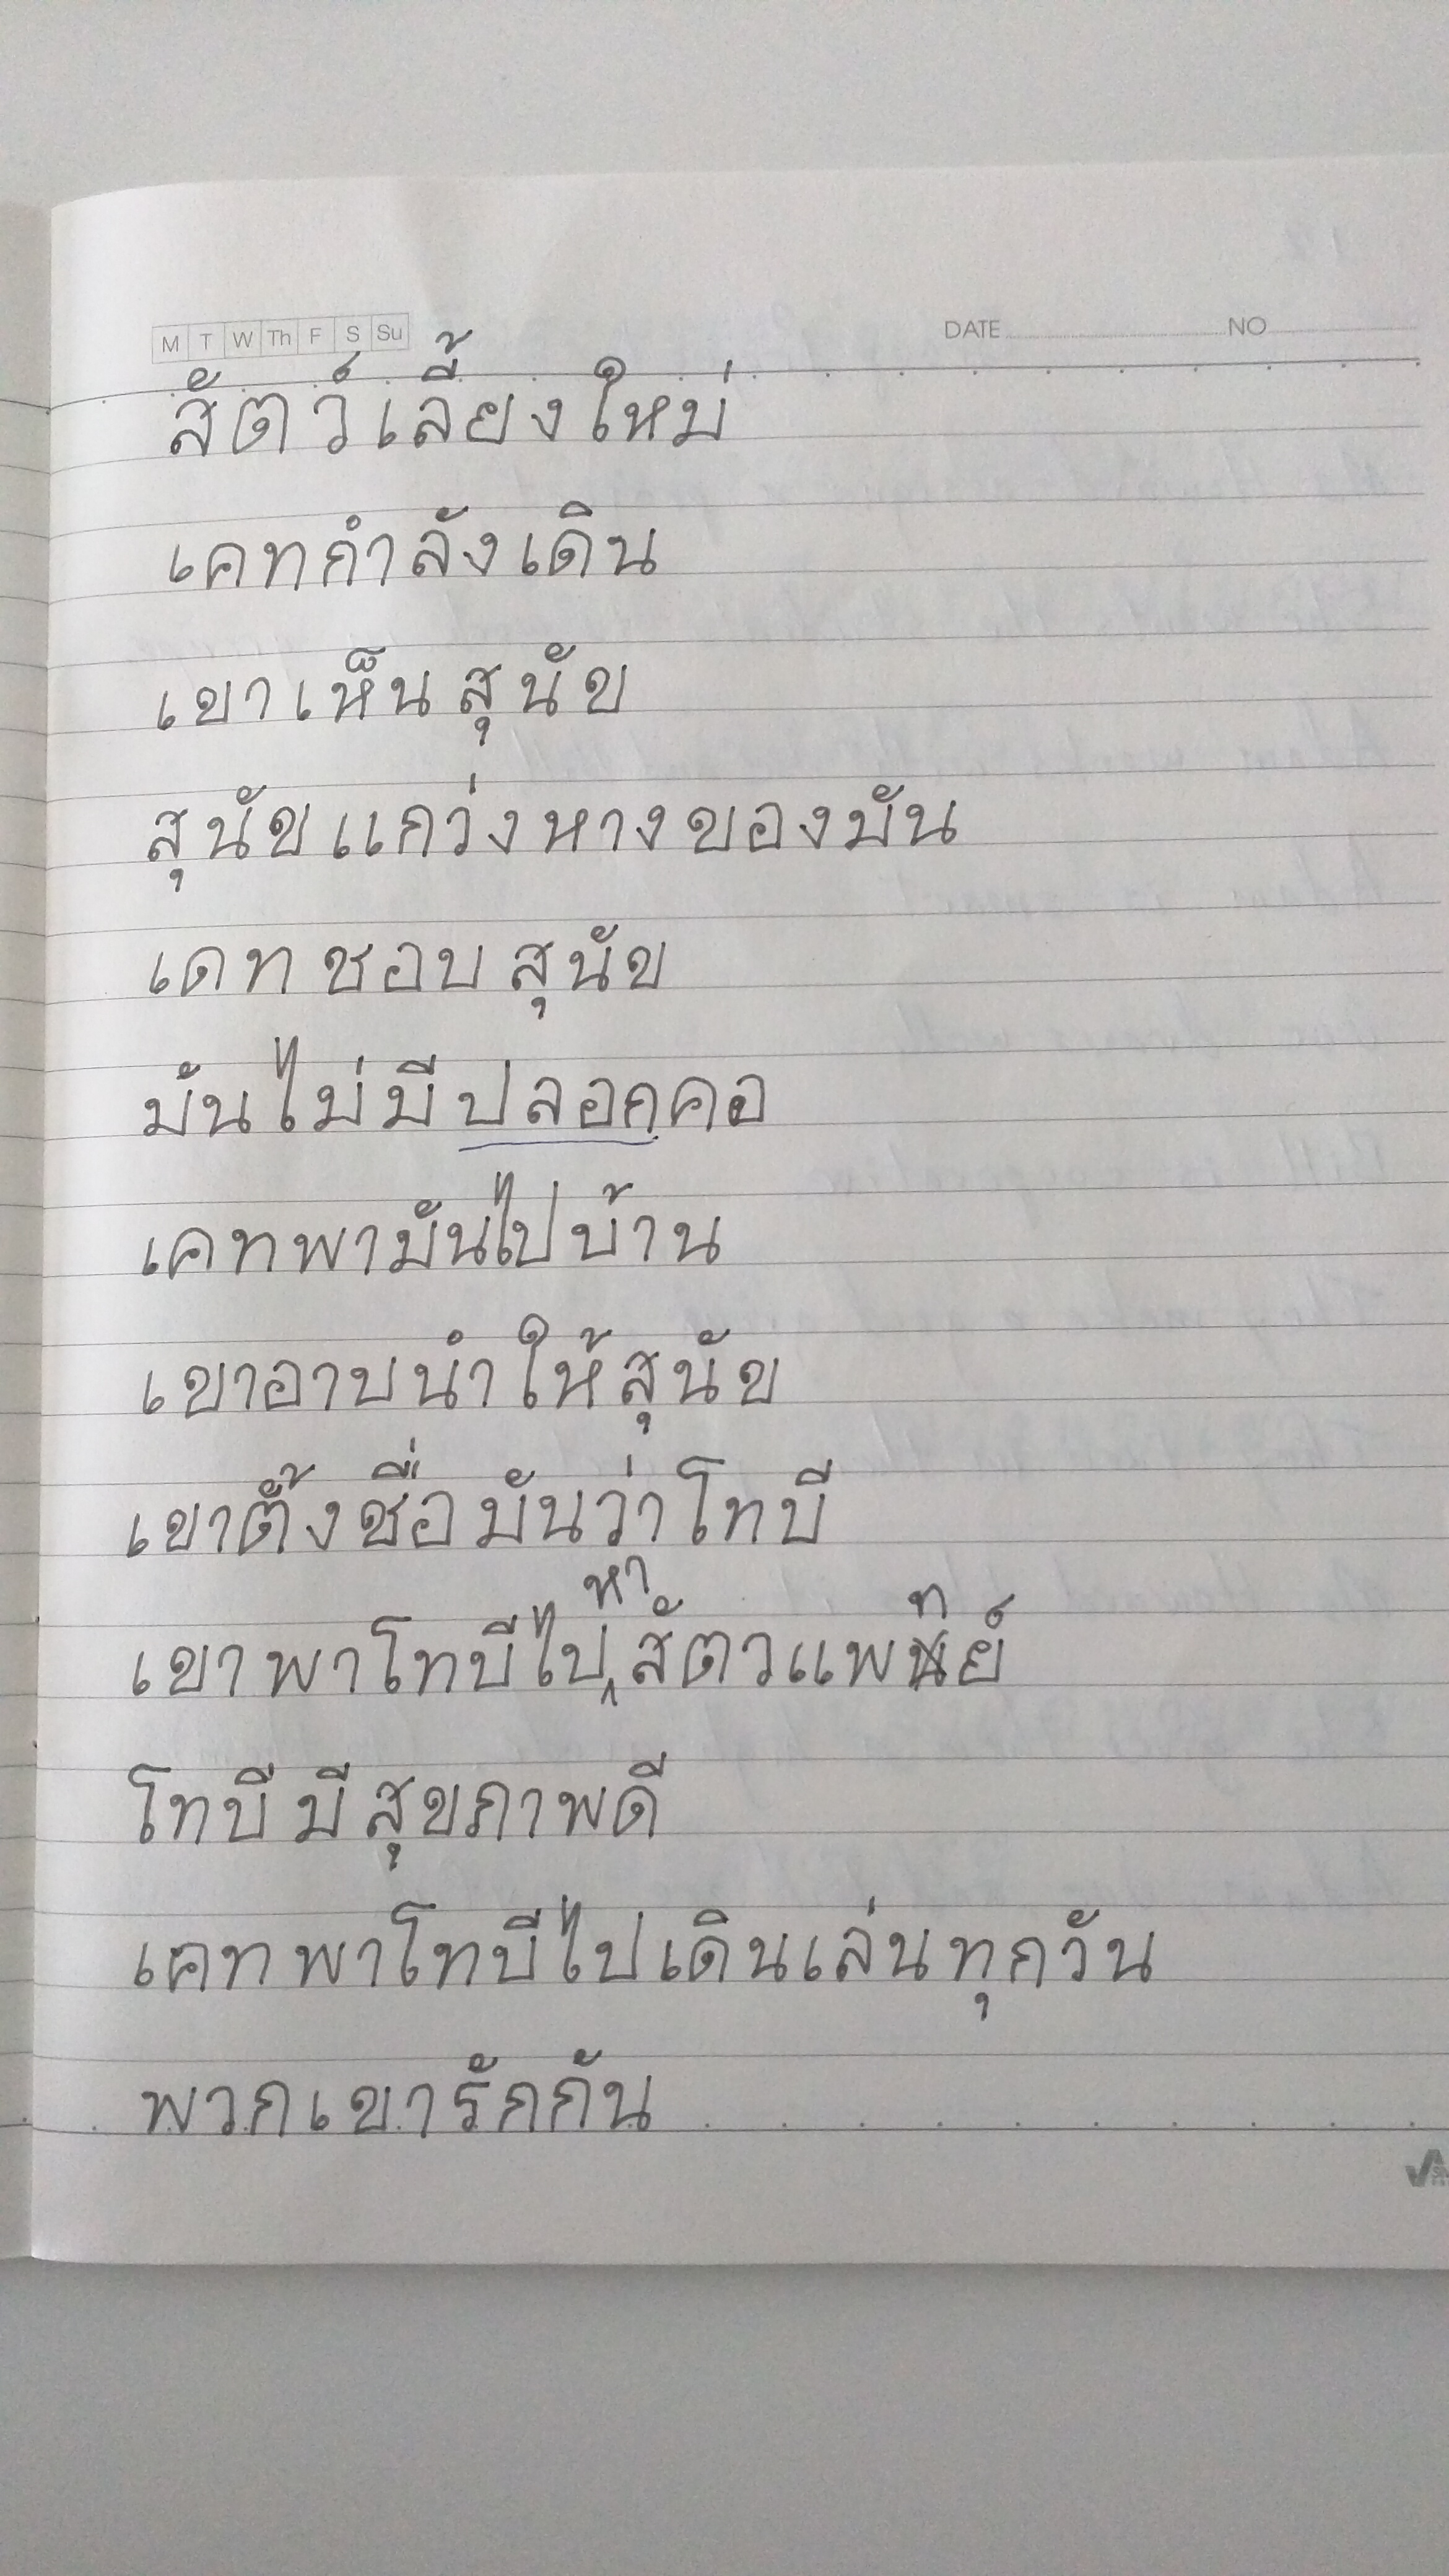 M T W Th F S Su
DATE NO
สัตว์เลี้ยงใหม่
เคทกำลังเดิน
เขาเห็นสุนัข
สุนัขแกว่งหางของมัน
เดทชอบสุนัข
มันไม่มีปลอกคอ
เคทพามันไปบ้าน
เขาอาบนำให้สุนัข
เขาตั้งชื่อมันว่าโทบี
เขาพาโทบีไปหาสัตวแพทย์
โทบีมีสุขภาพดี
เคทพาโทบีไปเดินเล่นทุกวัน
พวกเขารักกัน